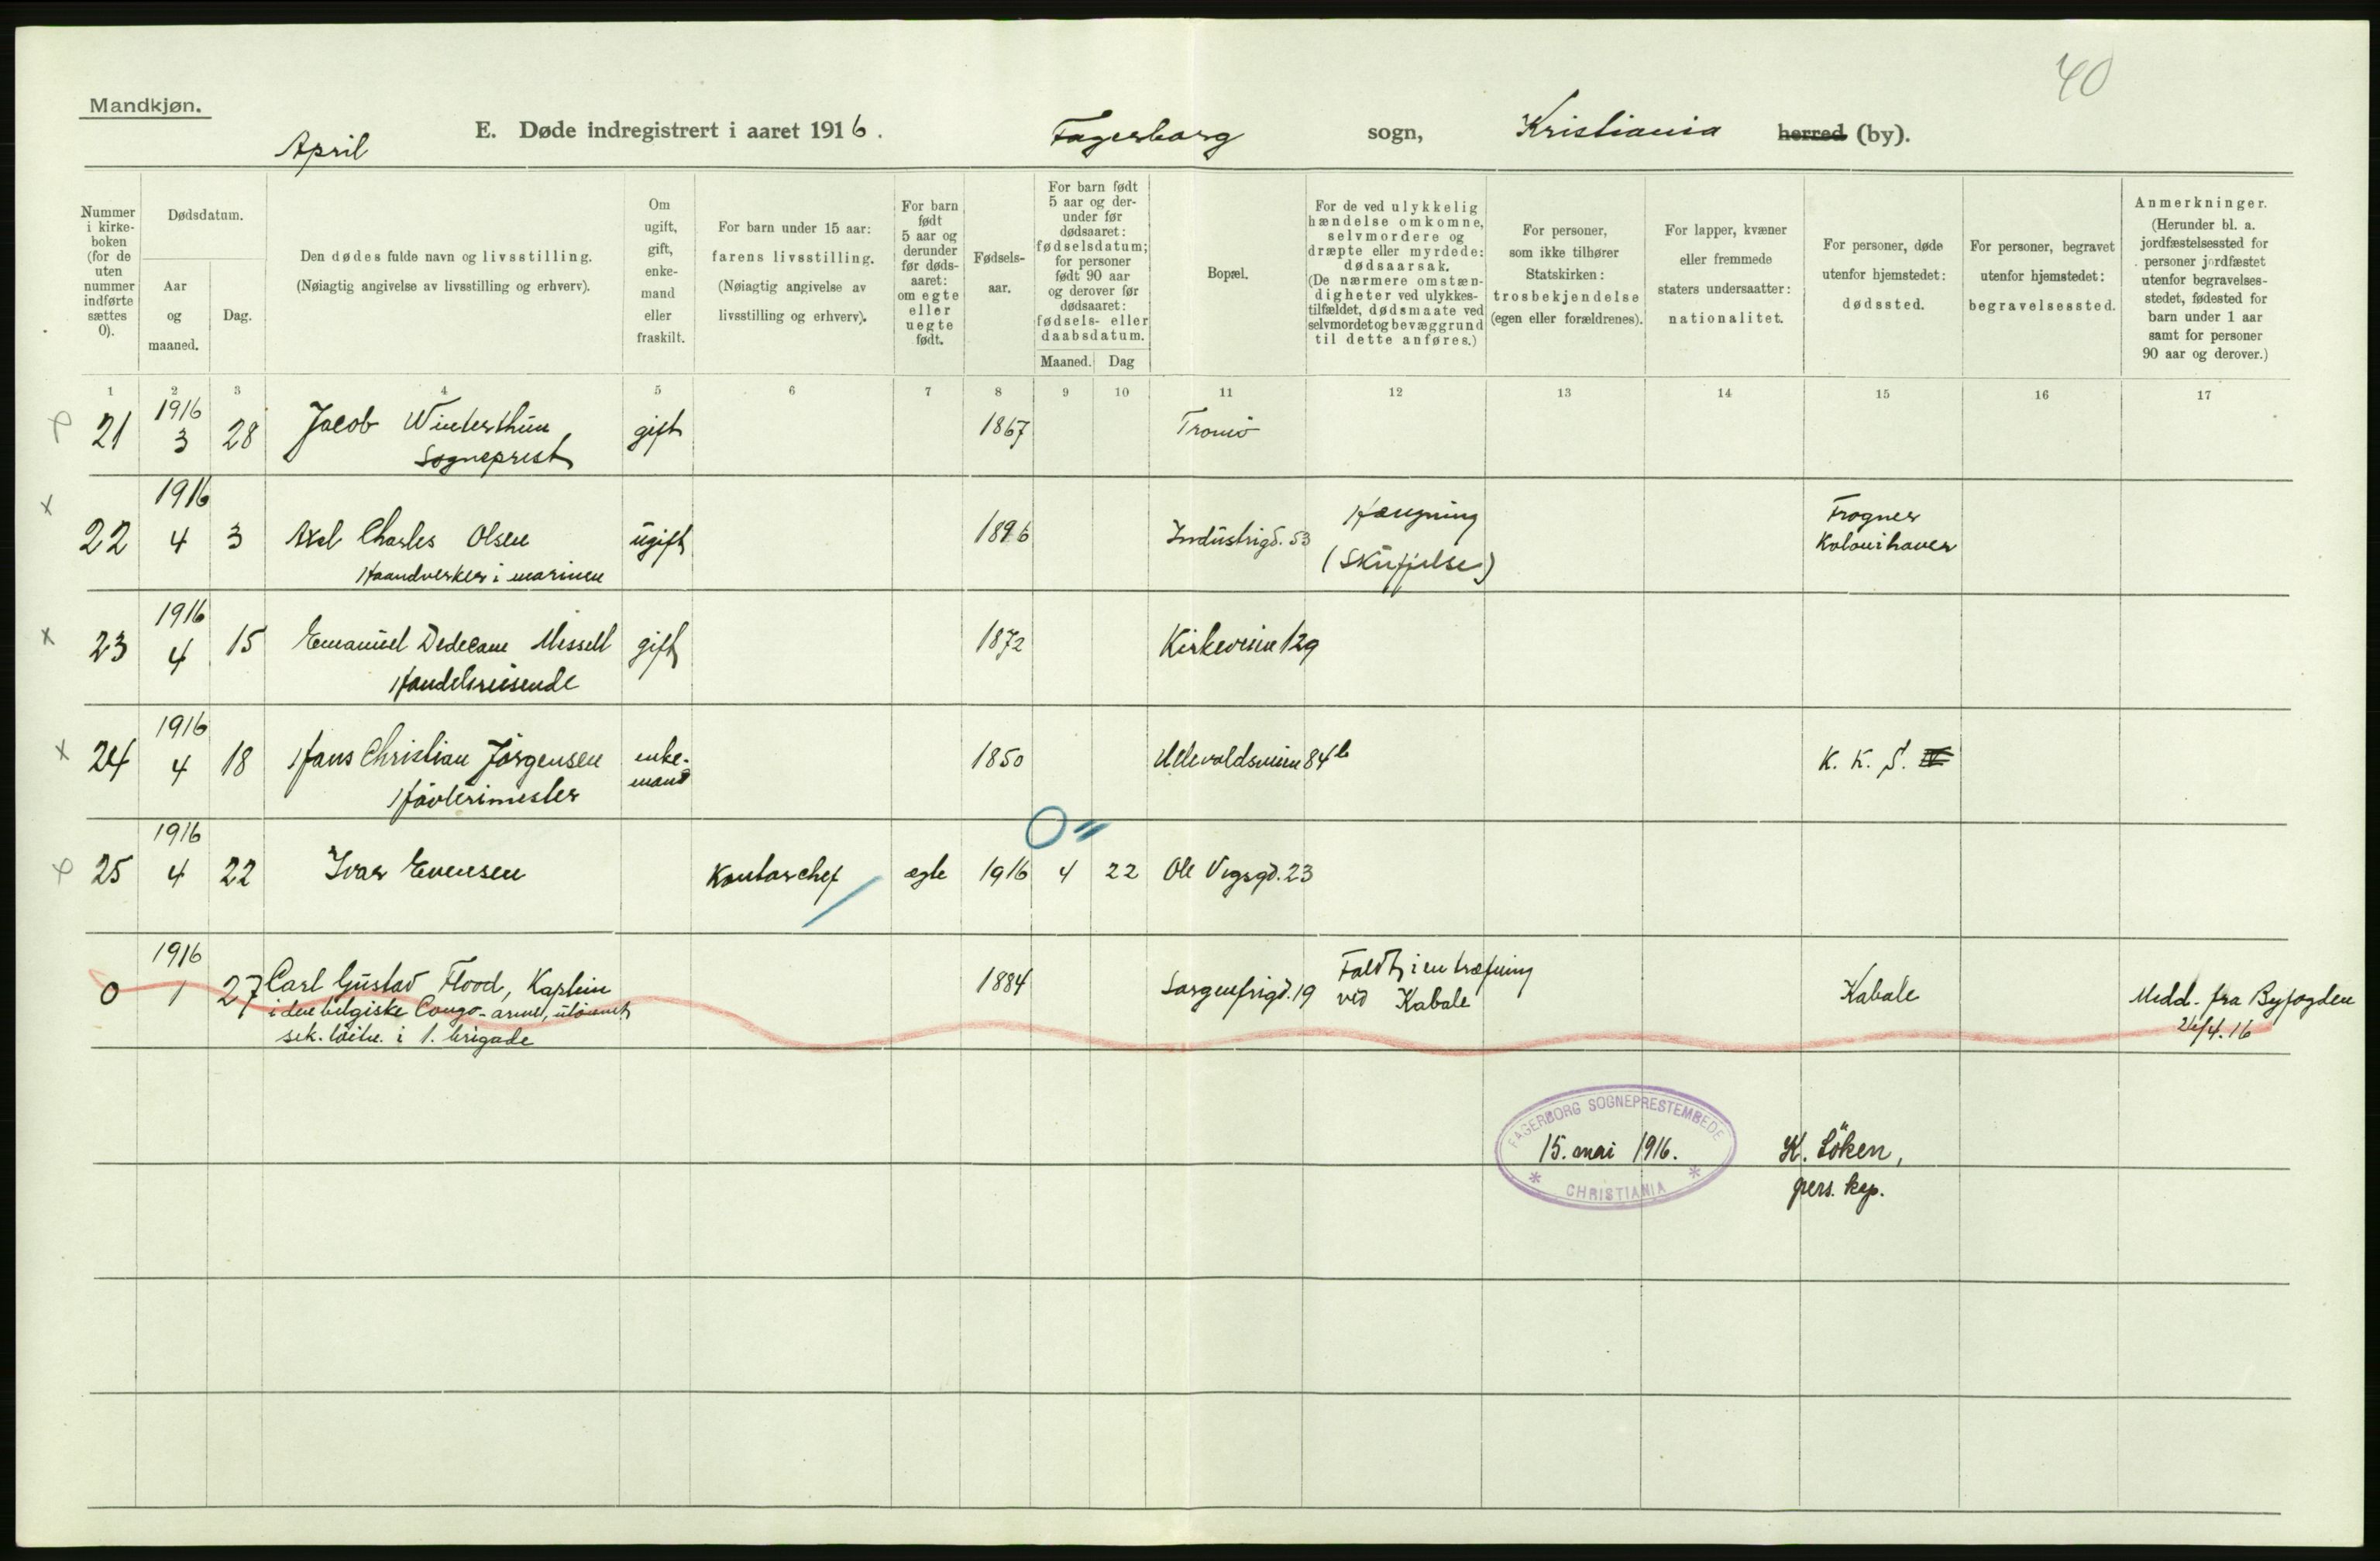 40
Mandkjøn.
April
E. Døde indregistrert i aaret 1916. Fagerborg sogn, Kristiania herred (by).
Nummer
i kirke-
boken
(for de
uten
nummer
indførte
sættes
0).
Dødsdatum.
Aar
og
maaned.
Dag.
Den dødes fulde navn og livsstilling.
(Nøiagtig angivelse av livsstilling og erhverv).
Om
ugift,
gift,
enke-
mand
eller
fraskilt.
For barn under 15 aar:
farens livsstilling.
(Nøiagtig angivelse av
livsstilling og erhverv).
For barn
født
5 aar og
derunder
før døds-
aaret:
om egte
eller
uegte
født.
Fødsels-
aar.
For barn født
5 aar og der-
under før
dødsaaret:
fødselsdatum;
for personer
født 90 aar
og derover før
dødsaaret:
fødsels- eller
daabsdatum.
Maaned.
Dag
Bopæl.
For de ved ulykkelig
hændelse omkomne,
selvmordere og
dræpte eller myrdede:
dødsaarsak.
(De nærmere omstæn-
digheter ved ulykkes-
tilfældet, dødsmaate ved
selvmordet og bevæggrund
til dette anføres.)
For personer,
som ikke tilhører
Statskirken:
trosbekjendelse
(egen eller forældrenes).
For lapper, kvæner
eller fremmede
staters undersaatter:
nationalitet.
For personer, døde
utenfor hjemstedet:
dødssted.
For personer, begravet
utenfor hjemstedet:
begravelsessted.
Anmerkninger.
(Herunder bl. a.
jordfæstelsessted for
personer jordfæstet
utenfor begravelses-
stedet, fødested for
barn under 1 aar
samt for personer
90 aar og derover.)
1 2 3 4 5 6 7 8 9 10 11 12 13 14 15 16 17
1916
21 3 28 Jacob Winterthun gift 1867 Tromø
Sogneprest
1916
22 4 3 Axel Charles Olsen ugift 1896 Industrigd. 53 Hængning Frogner
(Skuffelse) Kolonihaver
Haandverker i marinen
1916
23 4 15 Emanuel Dedecam Missell gift 1872 Kirkeveien 129
Handelsreisende
1916
24 4 18 Hans Christian Jörgensen enke- 1850 Ullevoldsveien 84b K. K. S.
mand
Høvlerimester
1916
25 4 22 Ivar Evensen Kontorchef egte 1916 4 22 Ole Vigsgd. 23
1916
0 1 27 Carl Gustav Flood, Kaptein 1884 Sorgenfrigd. 19 Faldt i en træfning Kabale Medd. fra Byfogden
i den belgiske Congo-armé, utdannet ved Kabale
sek. löitn. i 1. brigade
FAGERBORG SOGNEPRESTEMBEDE
15. mai 1916.
* CHRISTIANIA *
K. Söken,
pers. kap.